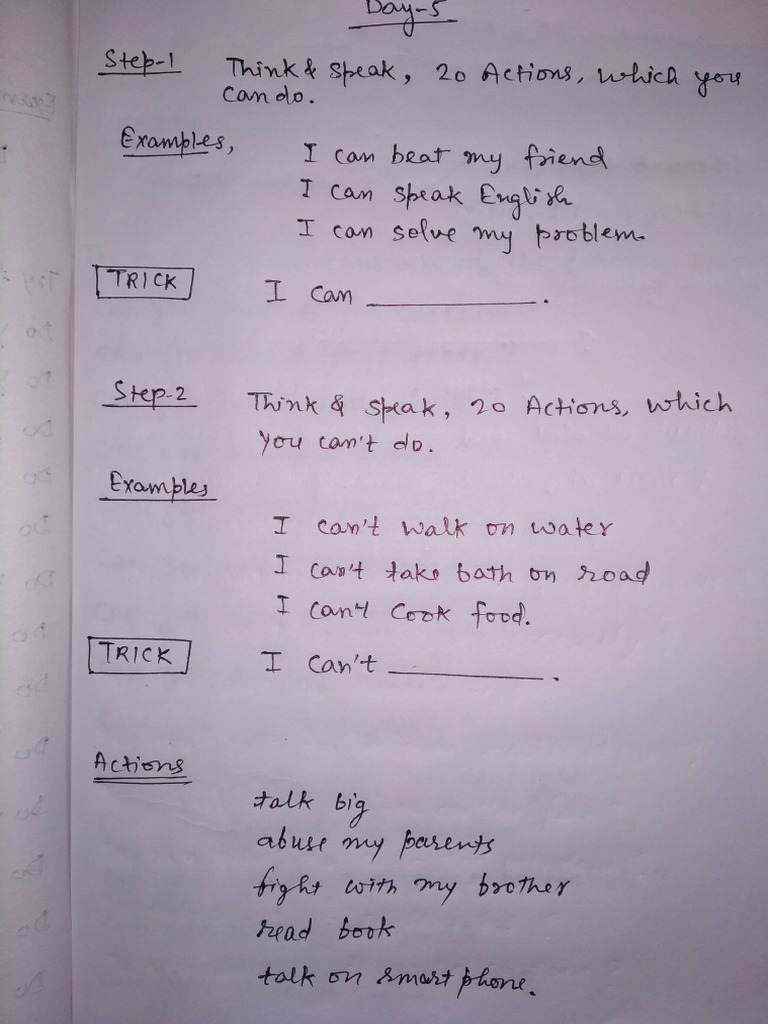 Day-5
Step-1 Think & Speak, 20 Actions, which you
can do.
Examples,
I can beat my friend
I can speak English
I can solve my problem.
TRICK I can ________.
Step-2 Think & Speak, 20 Actions, which
you can't do.
Examples
I can't walk on water
I can't take bath on road
I can't cook food.
TRICK I can't ________.
Actions
talk big
abuse my parents
fight with my brother
read book
talk on smart phone.